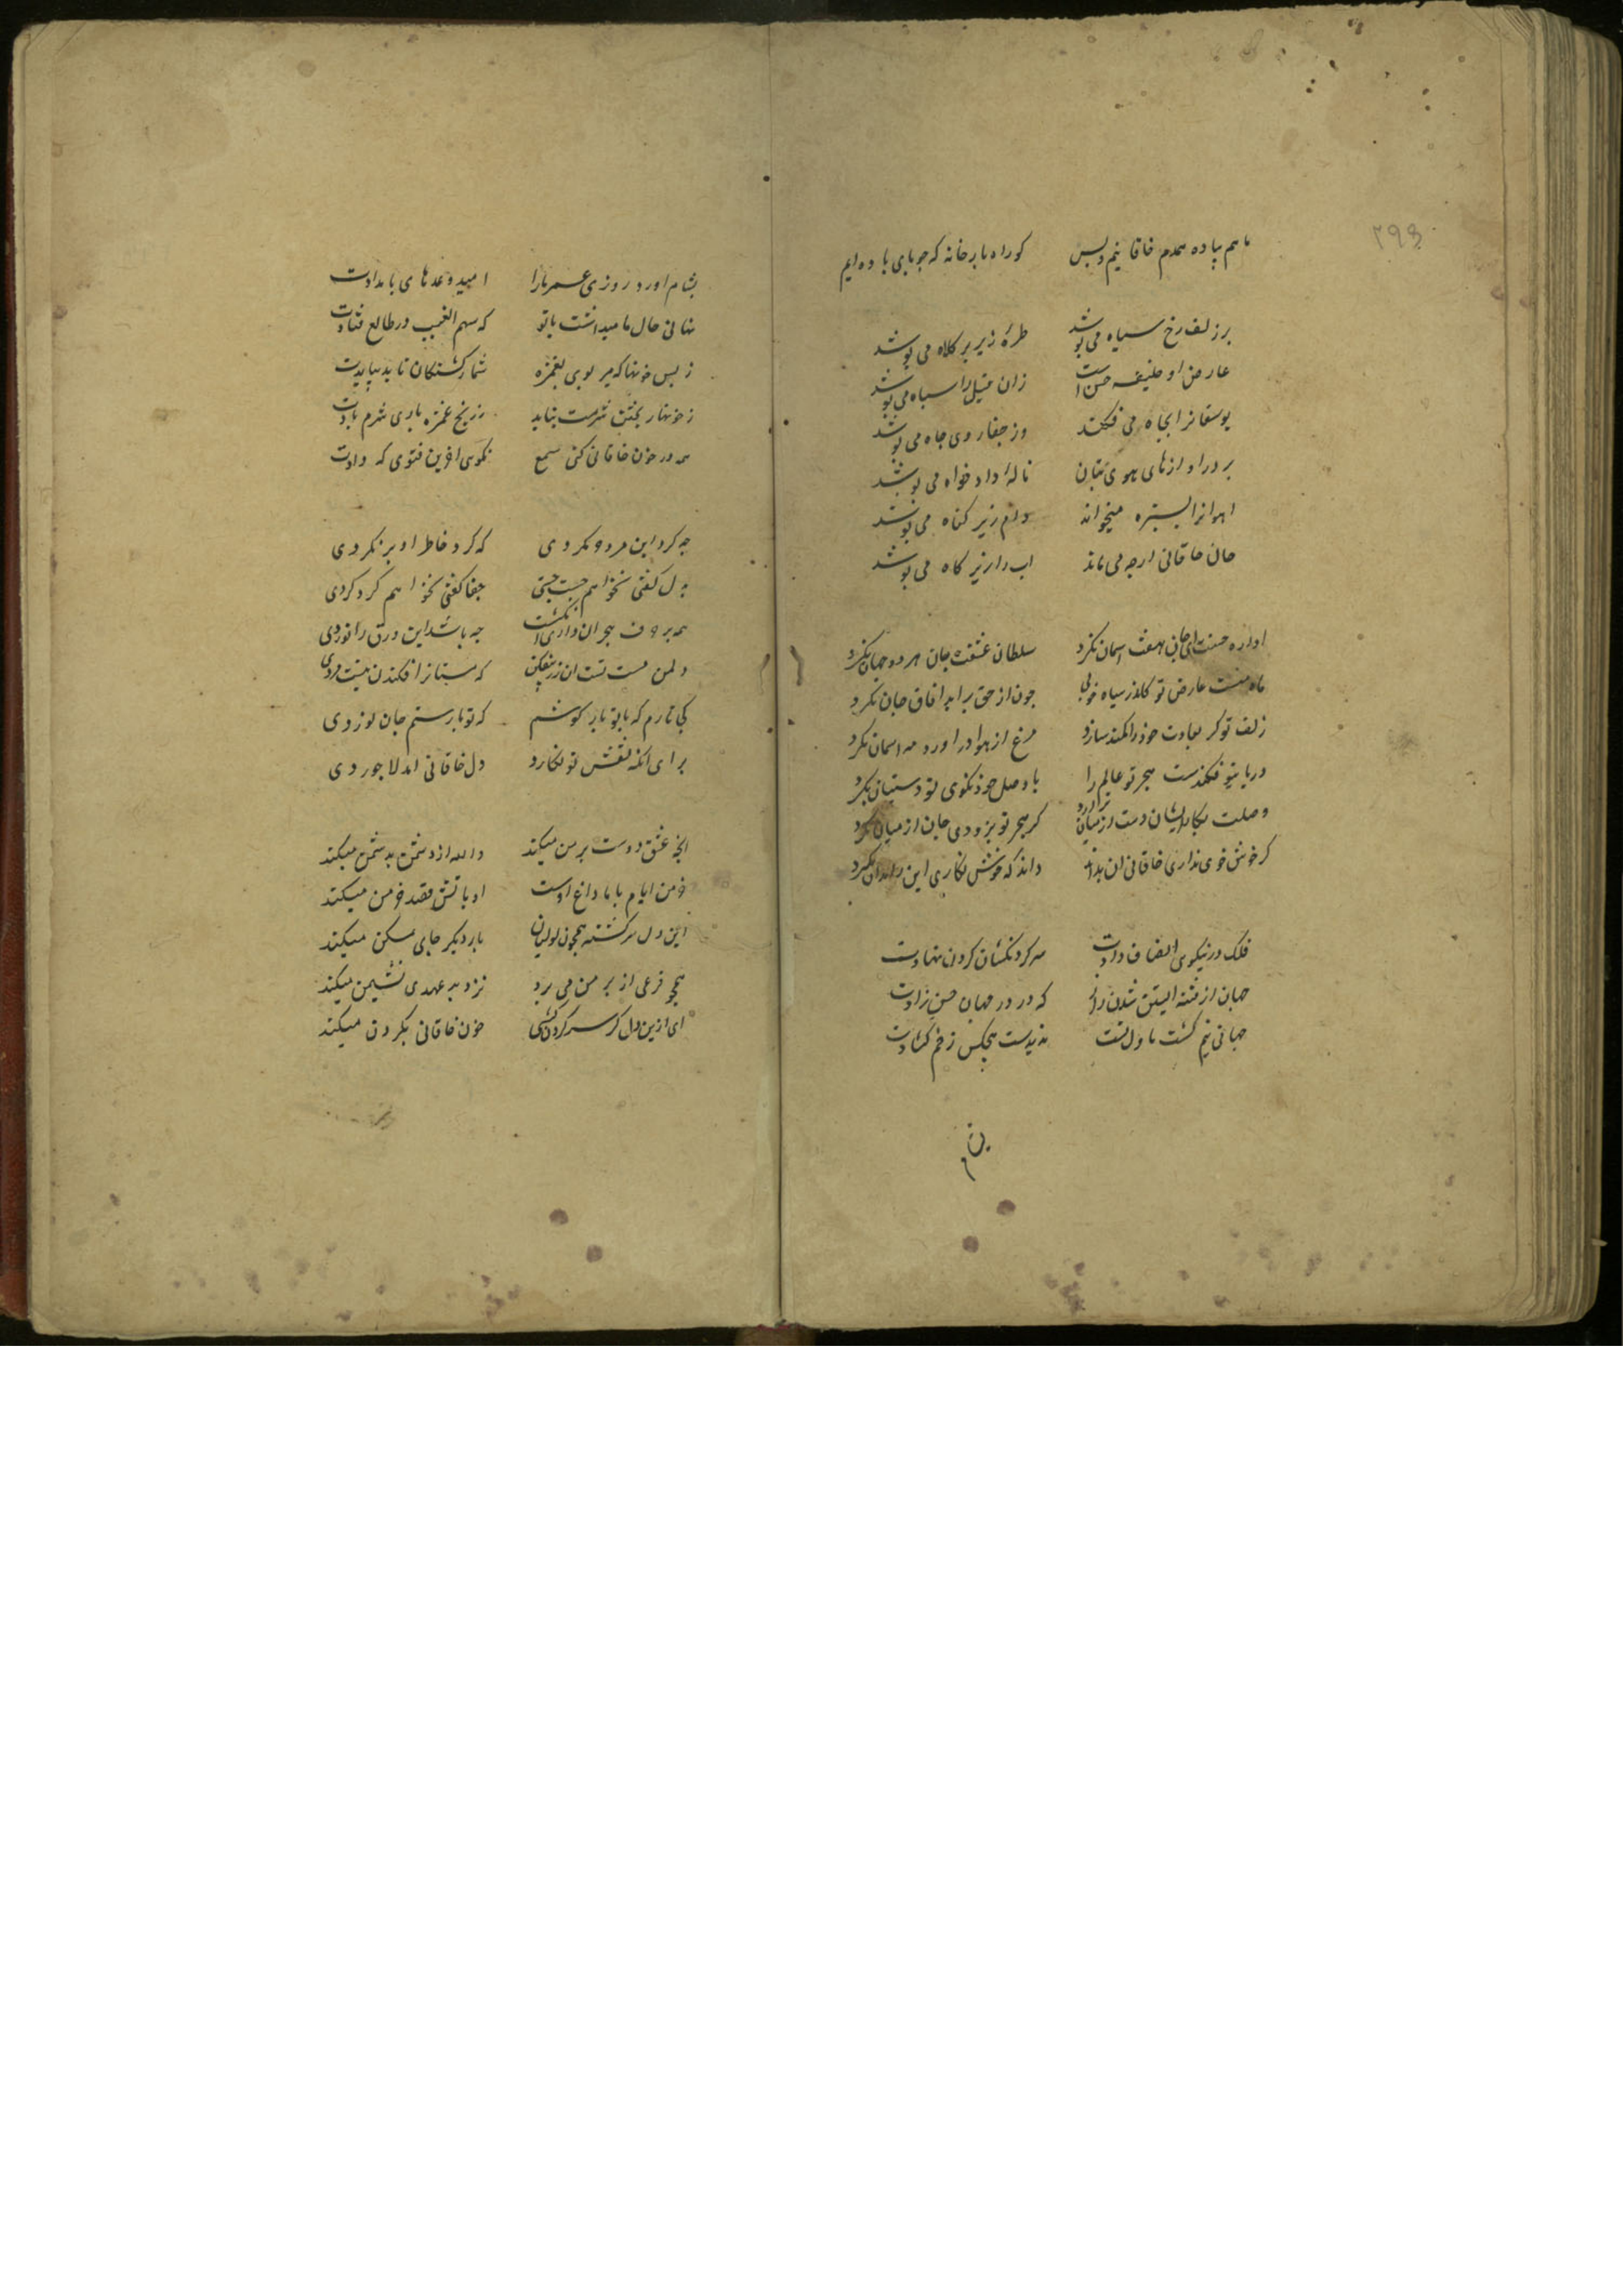 ۲۹۳
ما هم پیاده همدم خاقانیم و بس کو راه بارخانه که جویای باده ایم
بر زلف رخ سیاه می پوشد طره زیر کلاه می پوشد
عارض او خلیفه حسن است زان سیاه می پوشد
یوسفانرا بچاه می فکند وز جفا روی چاه می پوشد
بر در او از های هوی بتان ناله داد خواه می پوشد
اهوانرا بسبزه میخواند دام زیر کیاه می پوشد
جان خاقانی ارچه می ماند اب را زیر کاه می پوشد
اوازه حسنت ای جان هفت اسمان بگیرد سلطان عشقت ای جان هر دو جهان بگیرد
ماه عارض تو کاندر سیاه خوبی چون از حق براید افاق جان بگیرد
زلف تو گر بعادت خود را کمند سازد مرغ از هوا دراورد مه اسمان بگیرد
دریاب فکندست هجر تو عالم را با وصل خود نکوی تو دستان بگیرد
وصلت بکار ایشان دست از میان برارد گر هجر تو بزودی جان از میان بگیرد
گر خوش خوی نداری خاقانی ان بداند داند که خوش نکاری این را بدان بگیرد
فلک در نیکوی انصاف دادت سر گردنکشان گردن نهادت
جهان از فتنه ابستن شدن را که در در جهان حسن زادت
جهانی نیم کشت ناوک تست ندیدست هیچکس زخم کشادت
بشام اورد روزی عمر ما را امید وعدهای بامدادت
نهانی حال ما میدانست با تو که سهم الغیب در طالع فتادت
ز بس خونها که میریزی بغمزه شمار کشتکان ناید بیادت
ز خونها ریختن شرمت نیاید ز رنج غمزه باری شرم بادت
همه در خون خاقانی کنی سعی نکوی افرین فتوی که دادت
چه کرد این مرد و نکردی که کرد خاطر او بر نکردی
بدل گفتی نخواهم جست جستی جفا گفتی نخواهم کرد کردی
همه بر وف هجران داری انکشت چه باشد این ورق را نوردی
دل من مست تست ان زینفکن که مستانرا فکندن نیست مردی
کی یارم که با تو باز کوشم که تو با رستم جان نوردی
برای انکه نقش تو نگارد دل خاقانی امد لاجوردی
انچه عشق دوست بر من میکند والله از دشمن بدشمن میکند
خرمن ایام ما با داغ اوست او باتش قصد خرمن میکند
این دل سرکشته همچون لولیان باز دیگر جای مسکن میکند
همچو مرغی از بر من می پرد نزد بد عهدی نشیمن میکند
ای ازین دل کز سر گردن کشی خون خاقانی بگردن میکند